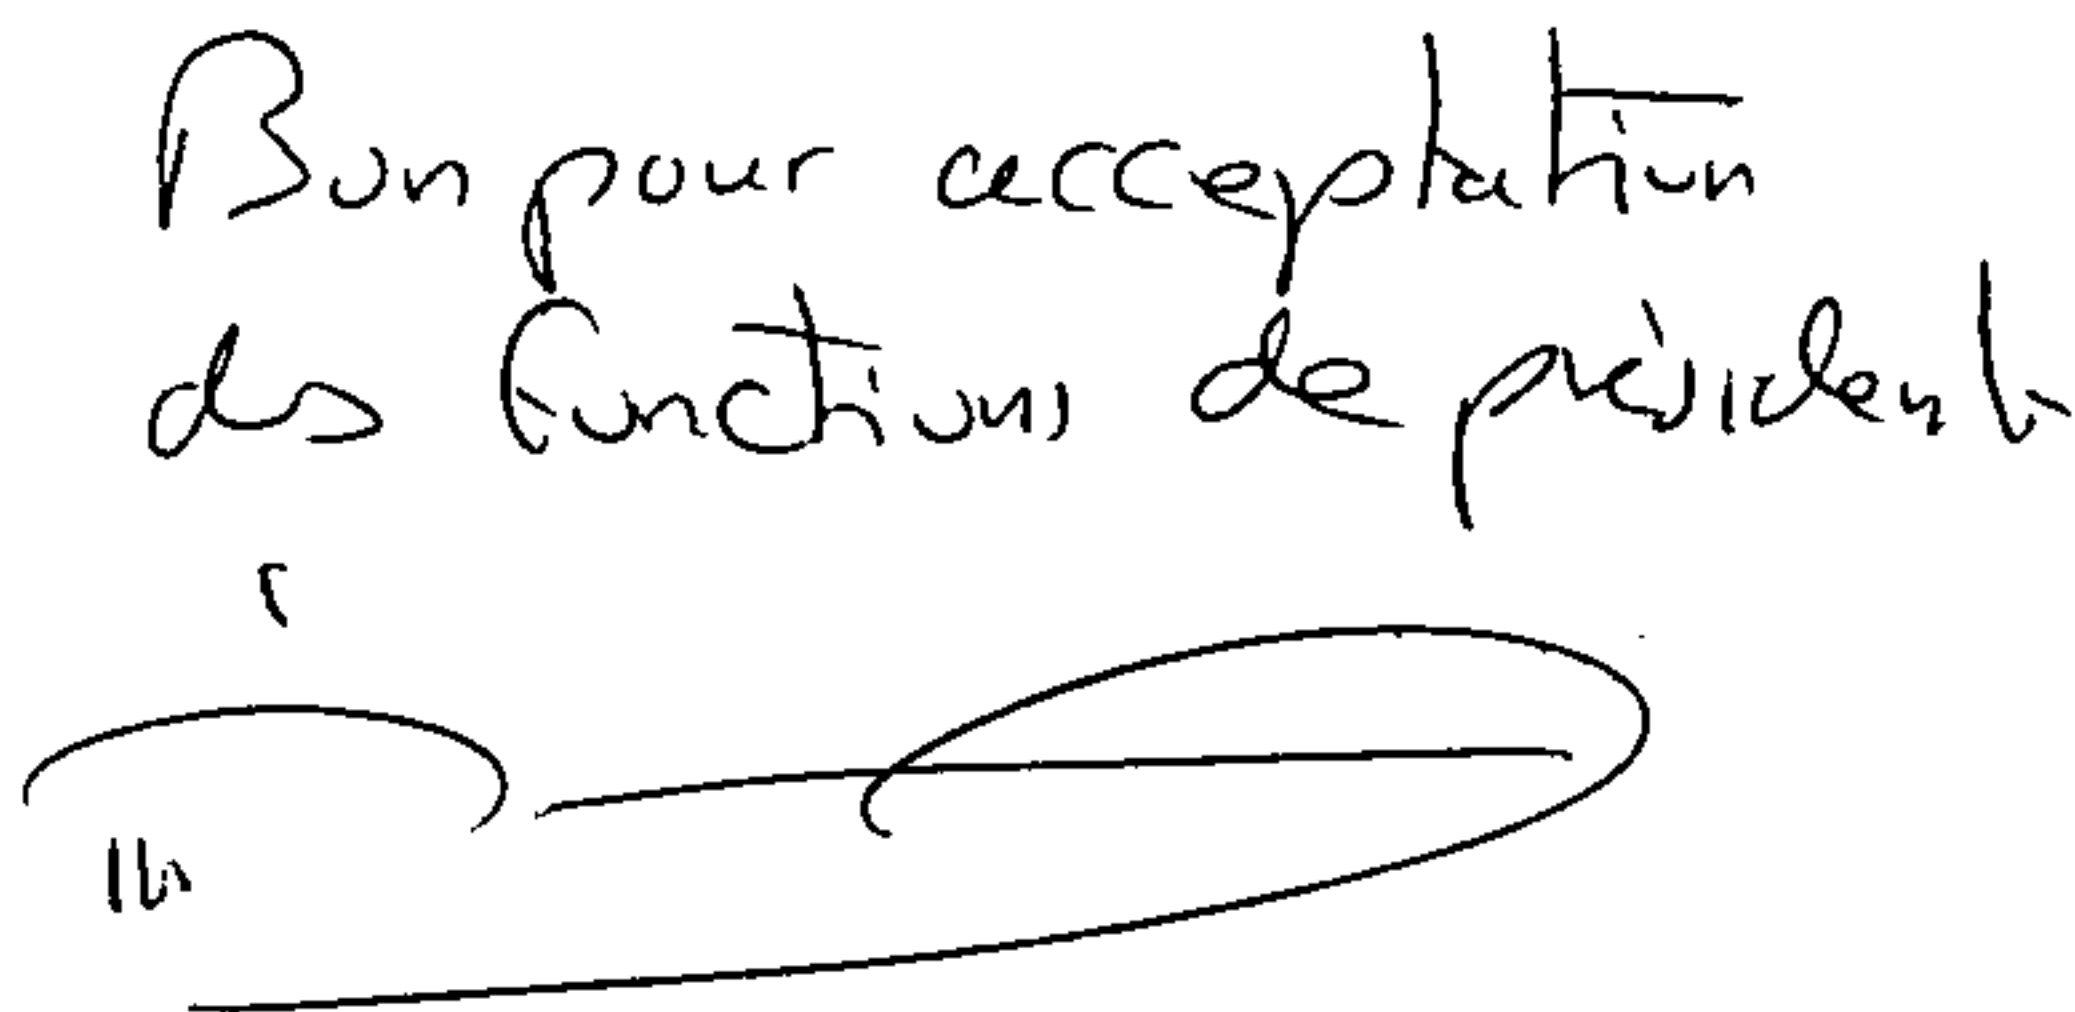 Bon pour acceptation
des fonctions de président